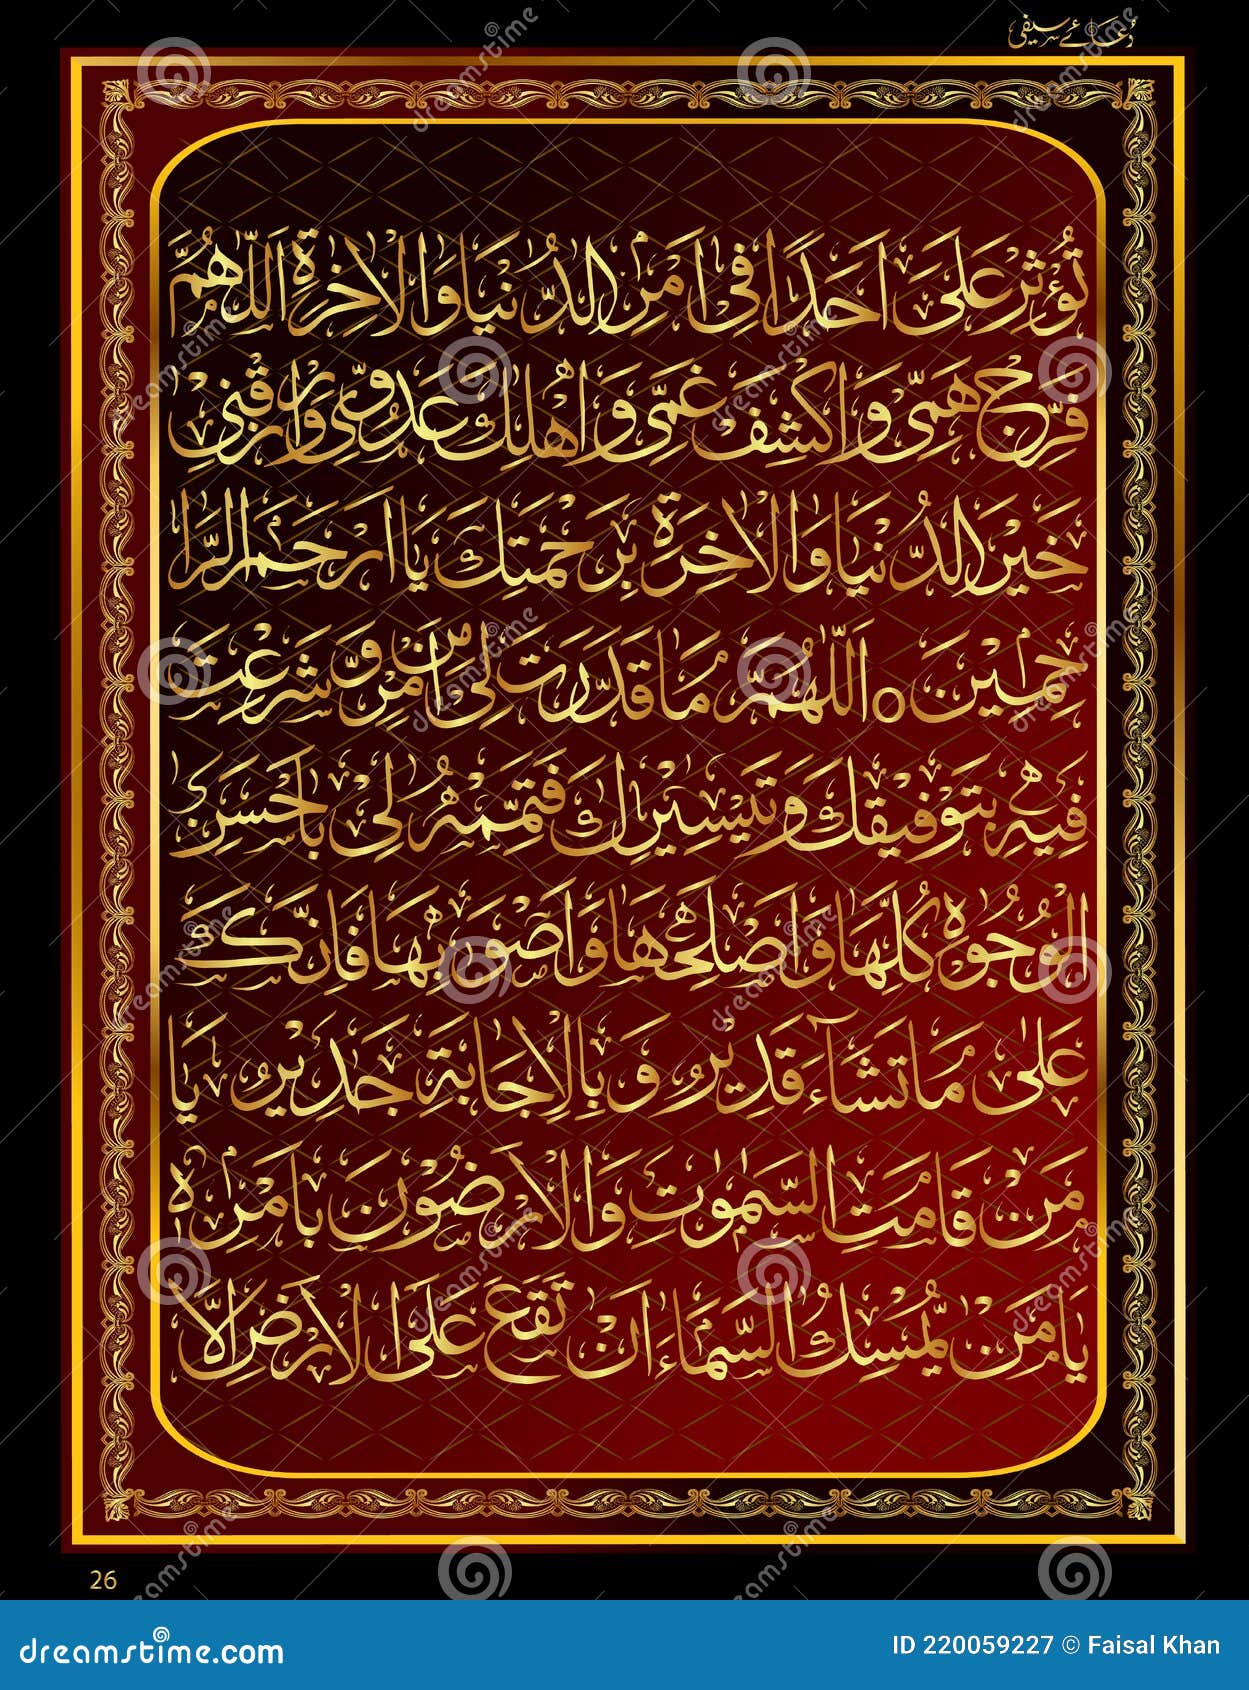 دُعائے سیفی
تُؤْثِرْ عَلَیَّ اَحَدًا فِیْ اَمْرِ الدُّنْیَا وَالْاٰخِرَةِ اَللّٰهُمَّ
فَرِّجْ هَمِّیْ وَاكْشِفْ غَمِّیْ وَاَهْلِكْ عَدُوِّیْ وَارْزُقْنِیْ
خَیْرَ الدُّنْیَا وَالْاٰخِرَةِ بِرَحْمَتِكَ یَا اَرْحَمَ الرَّا
حِمِیْنَ ه اَللّٰهُمَّ مَا قَدَّرْتَ لِیْ مِنْ اَمْرٍ وَّ شَرَعْتَ
فِیْهِ بِتَوْفِیْقِكَ وَتَیْسِیْرِكَ فَتَمِّمْهُ لِیْ بِاَحْسَنِ
الْوُجُوْهِ كُلِّهَا وَاَصْلَحِهَا وَاَصْوَبِهَا فَاِنَّكَ
عَلٰی مَا تَشَآءُ قَدِیْرٌ وَ بِالْاِجَابَةِ جَدِیْرٌ یَا
مَنْ قَامَتِ السَّمٰوٰتُ وَالْاَرْضُوْنَ بِاَمْرِهٖ
یَا مَنْ یُّمْسِكُ السَّمَآءَ اَنْ تَقَعَ عَلَی الْاَرْضِ اِلَّا
26
dreamstime.com
ID 220059227 © Faisal Khan